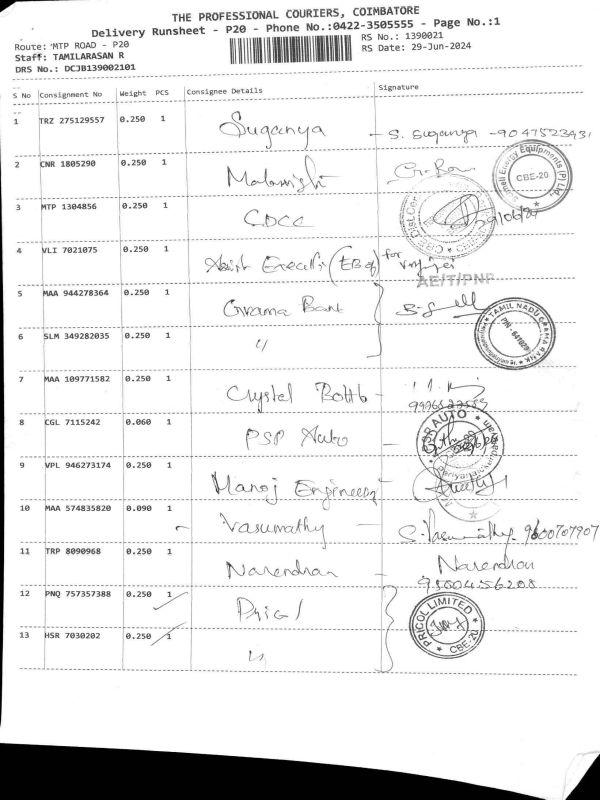 THE PROFESSIONAL COURIERS, COIMBATORE
Delivery Runsheet - P20 - Phone No.:0422-3505555 - Page No.:1
Route: 'MTP ROAD - P20
RS No.: 1390021
Staff: TAMILARASAN R
RS Date: 29-Jun-2024
DRS No.: DCJB139002101
S No Consignment No Weight PCS Consignee Details Signature
1 TRZ 275129557 0.250 1 Suganya - S. Suganya - 9047523431
2 CNR 1805290 0.250 1
Energy Equipments (P) Ltd. CBE-20
3 MTP 1304856 0.250 1 CDCC
4 VLI 7021075 0.250 1 (EB for
AE/T/PNP
5 MAA 944278364 0.250 1 Grama Bank
TAMIL NADU GRAMA BANK
PIN - 641029
6 SLM 349282035 0.250 1 "
7 MAA 109771582 0.250 1 Crystal
8 CGL 7115242 0.060 1 PSP Auto
AUTO
9 VPL 946273174 0.250 1 Manoj Engineers
10 MAA 574835820 0.090 1 Vasumathy - S. Vasumathy. 9600707907
11 TRP 8090968 0.250 1 Narendran - Narendran
12 PNQ 757357388 0.250 1 Pricol
PRICOL LIMITED
CBE-20
13 HSR 7030202 0.250 1 "